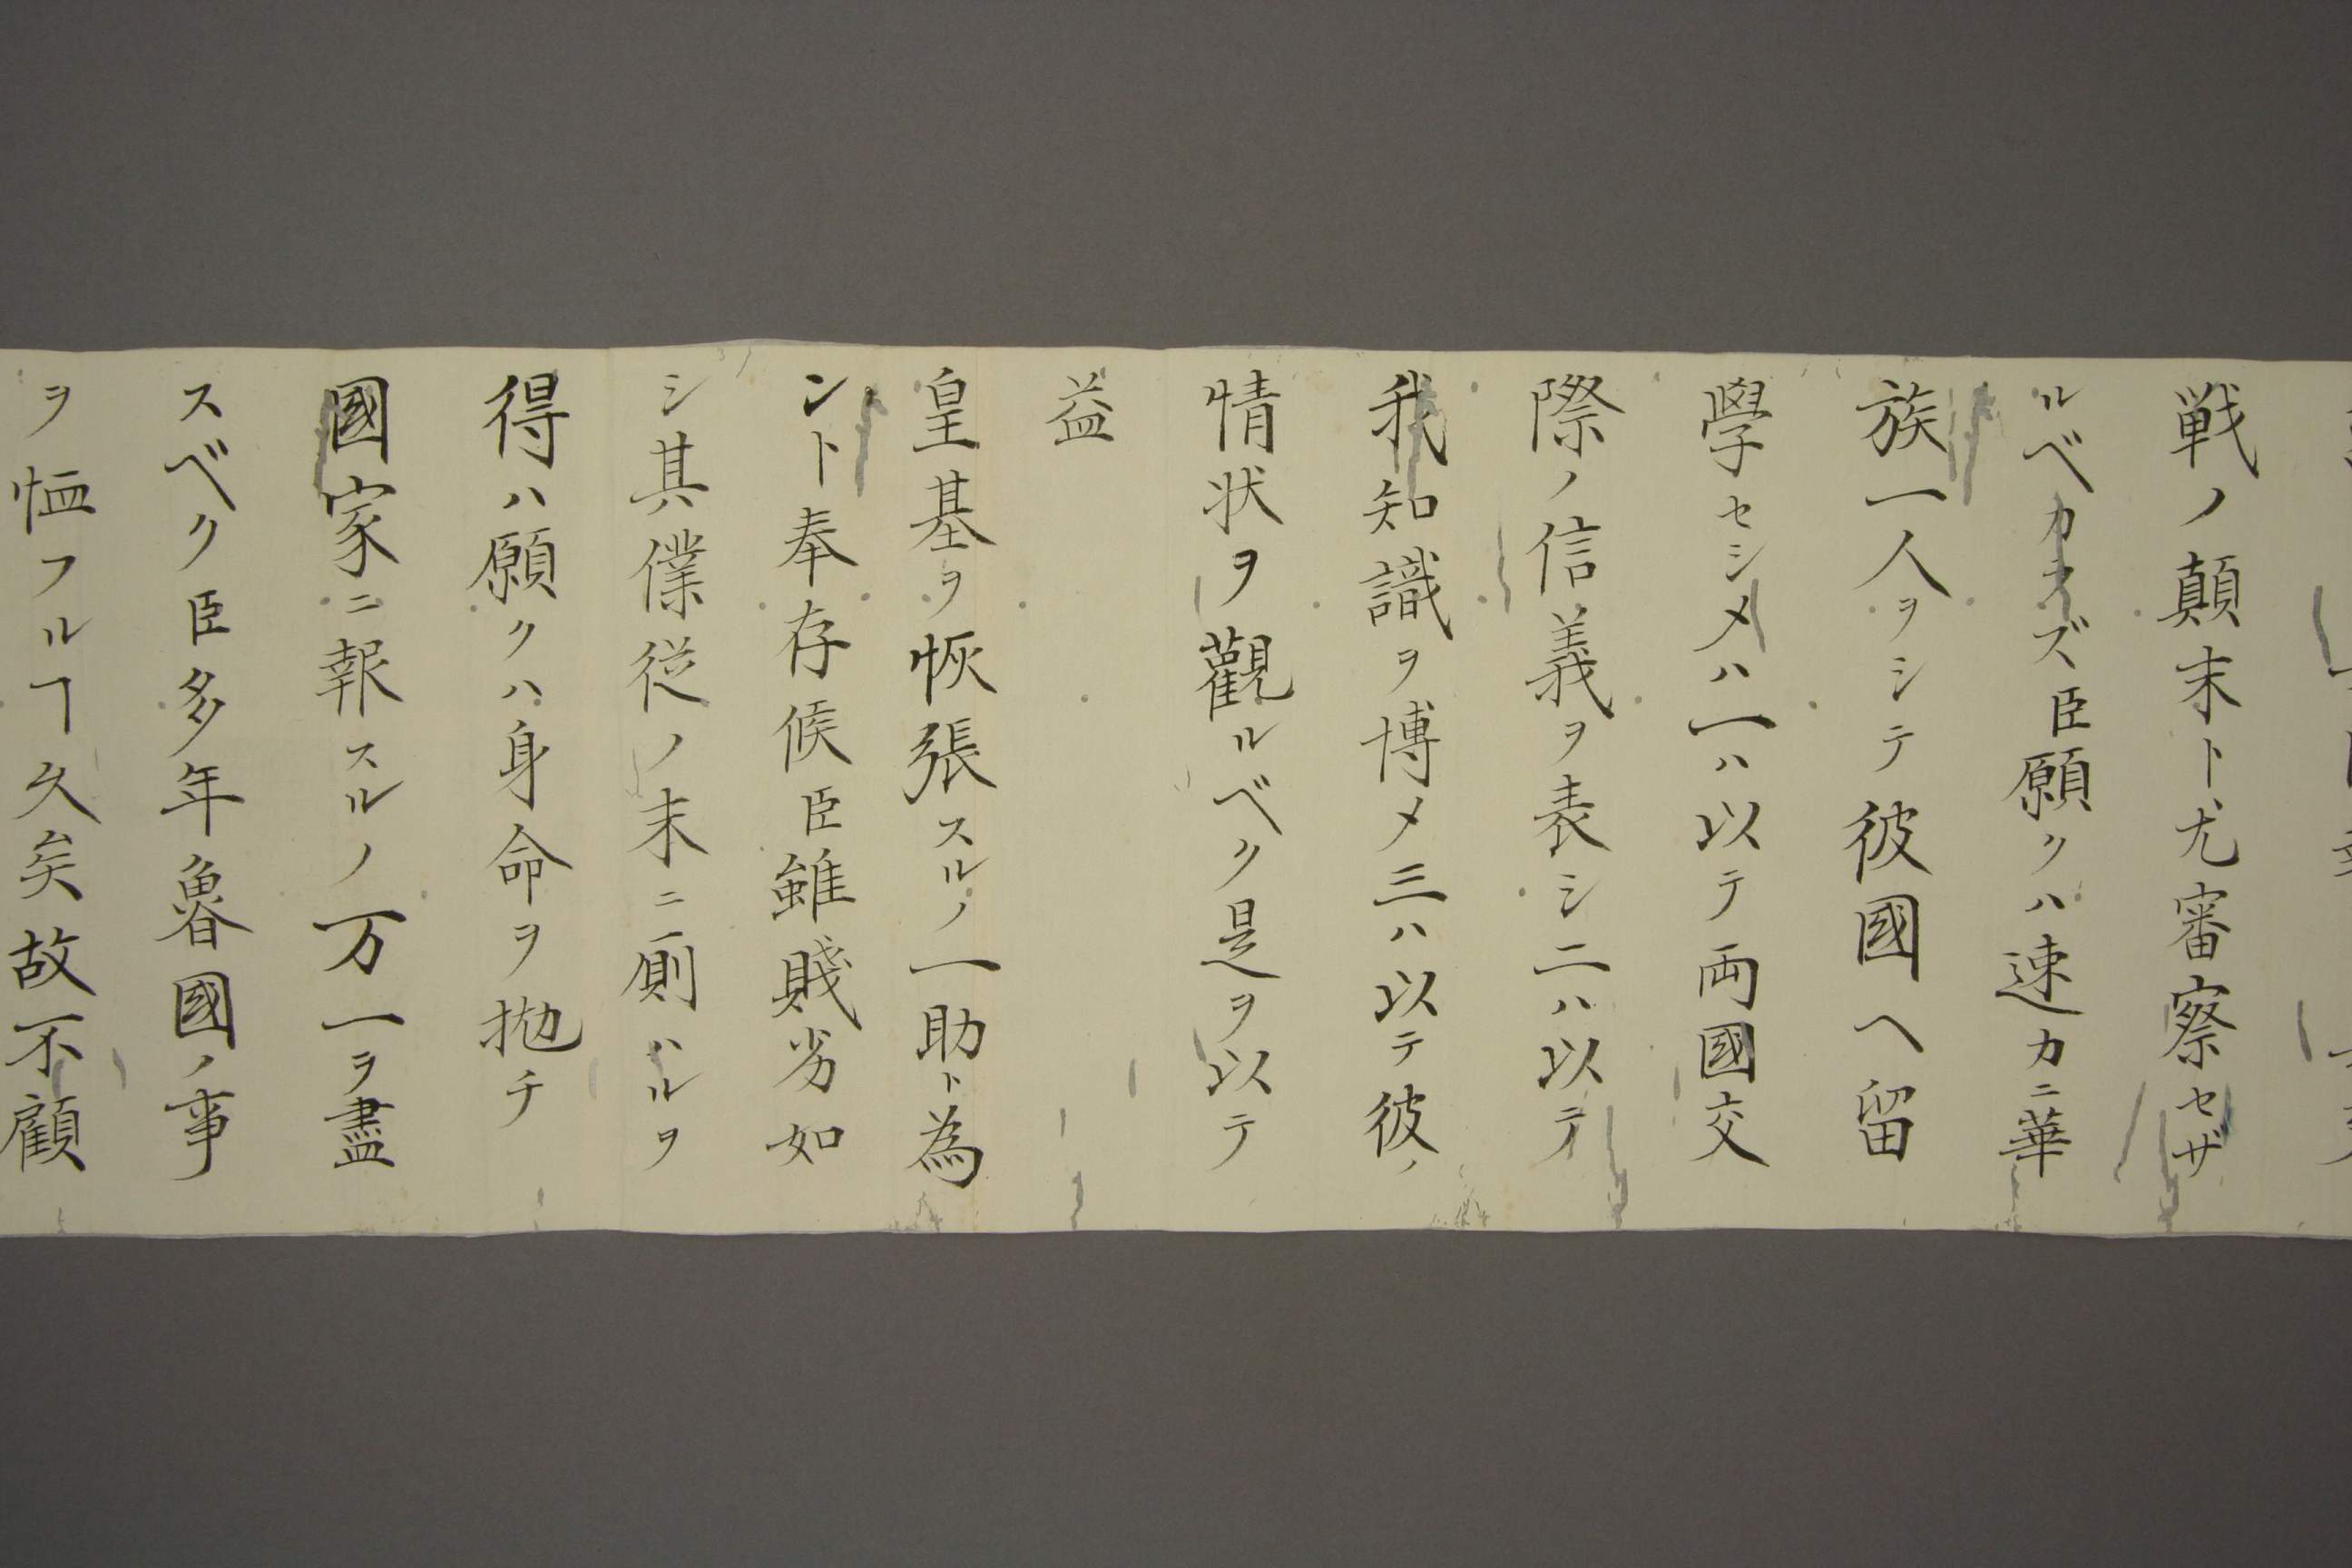 戦ノ顛末ト尤審察セザ
ルベカラズ臣願クハ速カニ華
族一人ヲシテ彼國ヘ留
學セシメハ一ハ以テ両國交
際ノ信義ヲ表シ二ハ以テ
我知識ヲ博メ三ハ以テ彼ノ
情状ヲ觀ルベク是ヲ以テ
益
皇基ヲ恢張スルノ一助ト為
ント奉存候臣雖賤劣如
シ其僕従ノ末ニ厠ハルヲ
得ハ願クハ身命ヲ抛チ
國家ニ報スルノ万一ヲ盡
スベク臣多年魯國ノ事
ヲ恤フルヿ久矣故不顧